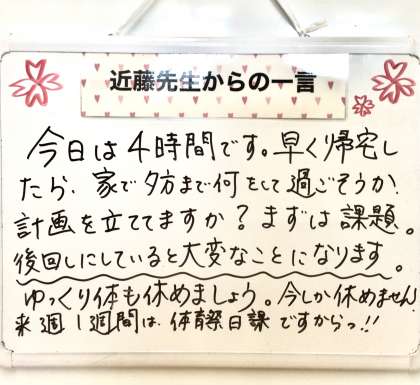 近藤先生からの一言
今日は4時間です。早く帰宅し
たら、家で夕方まで何をして過ごそうか
計画を立ててますか?まずは課題。
後回しにしていると大変なことになります。
ゆっくり体も休めましょう。今しか休めません!
来週1週間は、体育祭日課ですからっ!!